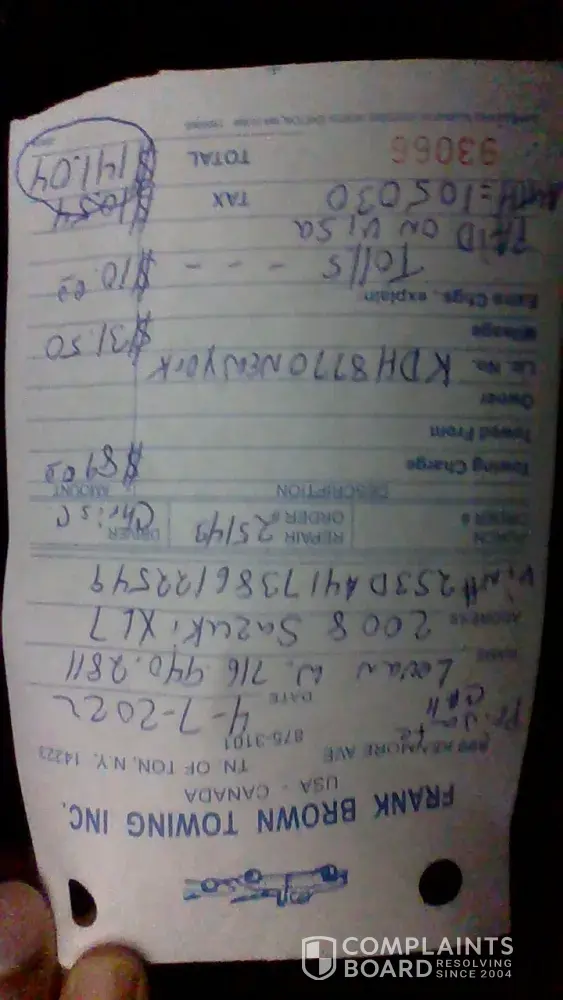 FRANK BROWN TOWING INC.
USA - CANADA
KENMORE AVE TN. OF TON, N.Y. 14223
875-3101
DATE 4-7-2022
NAME Levan W. 716.940.2811
ADDRESS 2008 Suzuki XL7
Vin# 2S3DA417386122549
ORDER #
REPAIR ORDER # 25149
DRIVER Chris C
DESCRIPTION AMOUNT
Towing Charge $89.00
Towed From
Owner
Lic. No. KDH8770 NEW YORK
Mileage $31.50
Extra Chgs. explain
Tolls - - - - $10.00
PAID ON VISA
105030 TAX $10.54
93066 TOTAL $141.04
COMPLAINTS
BOARD RESOLVING
SINCE 2004